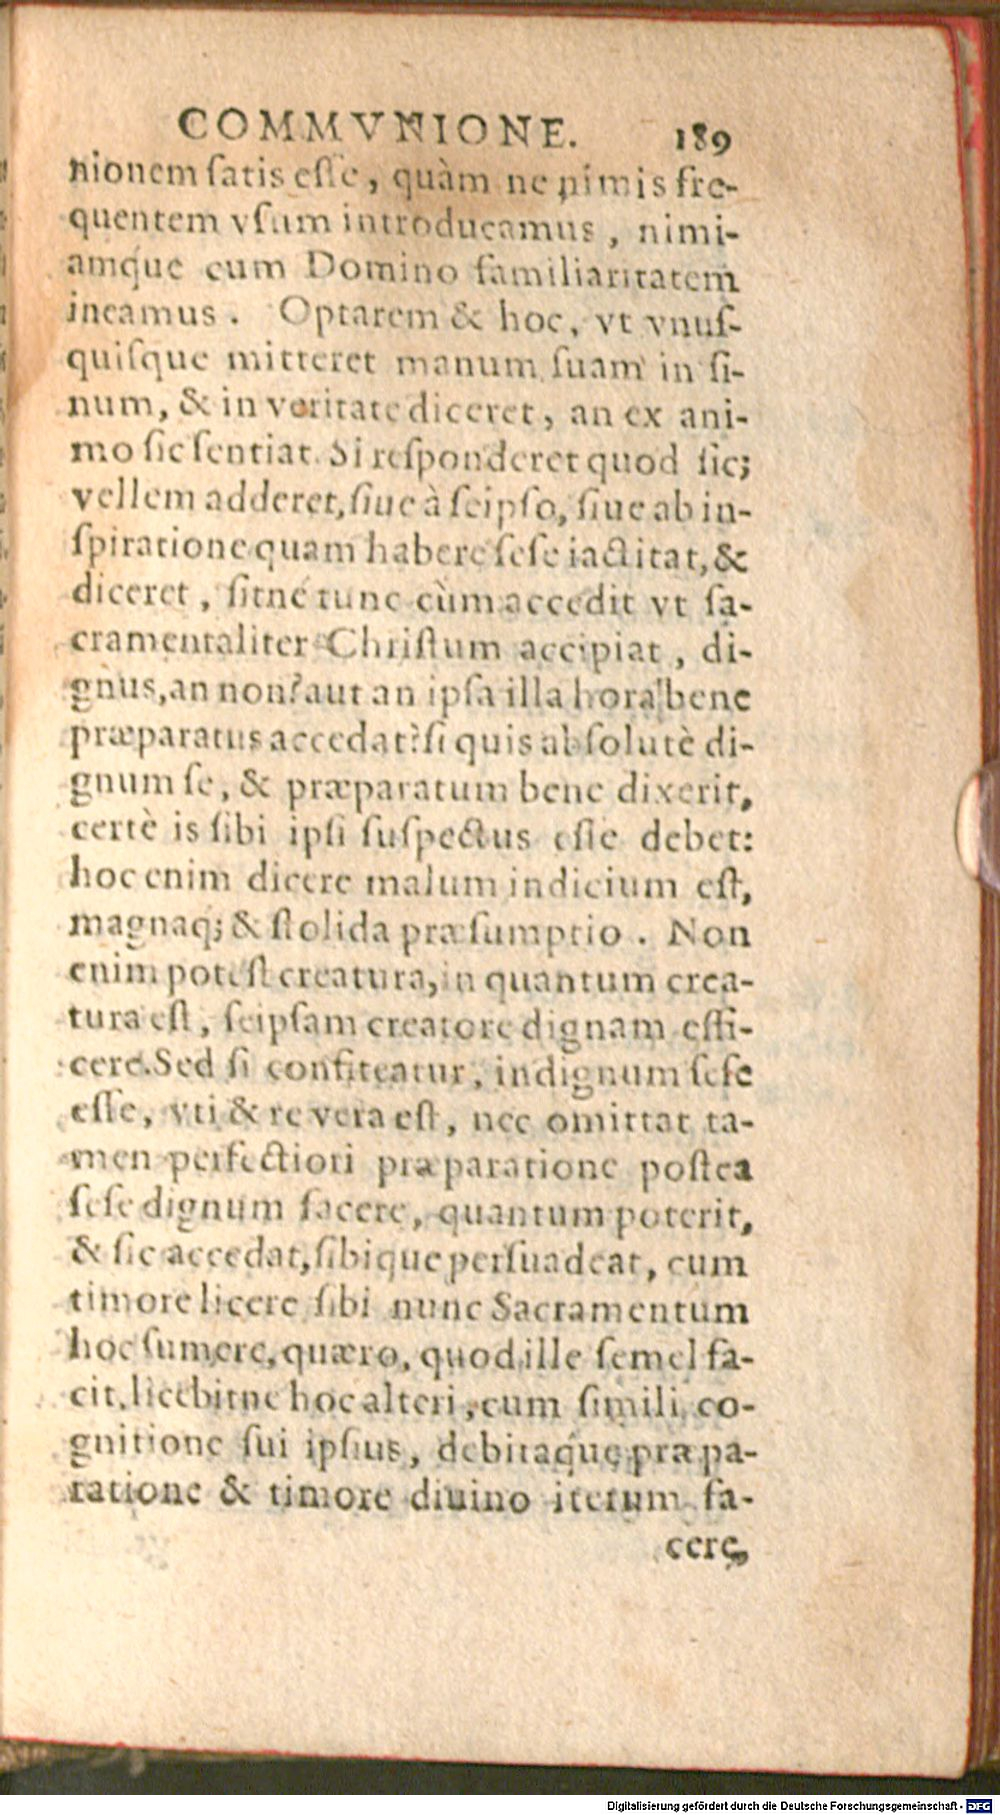 COMMVNIONE. 189
nionem ſatis eſſe, quàm ne nimis fre-
quentem vſum introducamus, nimi-
amq́ue cum Domino familiaritatem
ineamus. Optarem & hoc, vt vnuſ-
quiſque mitteret manum ſuam in ſi-
num, & in veritate diceret, an ex ani-
mo ſic ſentiat. Si reſponderet quod ſic;
vellem adderet, ſiue à ſeipſo, ſiue ab in-
ſpiratione quam habere ſeſe iactitat, &
diceret, ſitne tunc cùm accedit vt ſa-
cramentaliter Chriſtum accipiat, di-
gnus, an non? aut an ipſa illa hora bene
præparatus accedat? ſi quis abſolutè di-
gnum ſe, & præparatum bene dixerit,
certè is ſibi ipſi ſuſpectus eſſe debet:
hoc enim dicere malum indicium eſt,
magnaq; & ſtolida præſumptio. Non
enim poteſt creatura, in quantum crea-
tura eſt, ſeipſam creatore dignam effi-
cere. Sed ſi confiteatur, indignum ſeſe
eſſe, vti & re vera eſt, nec omittat ta-
men perfectiori præparatione poſtea
ſeſe dignum facere, quantum poterit,
& ſic accedat, ſibique perſuadeat, cum
timore licere ſibi nunc Sacramentum
hoc ſumere, quæro, quod ille ſemel fa-
cit, licebitne hoc alteri, cum ſimili co-
gnitione ſui ipſius, debitaq́ue præpa-
ratione & timore diuino iterum fa-
cere,
Digitalisierung gefördert durch die Deutsche Forschungsgemeinschaft - DFG